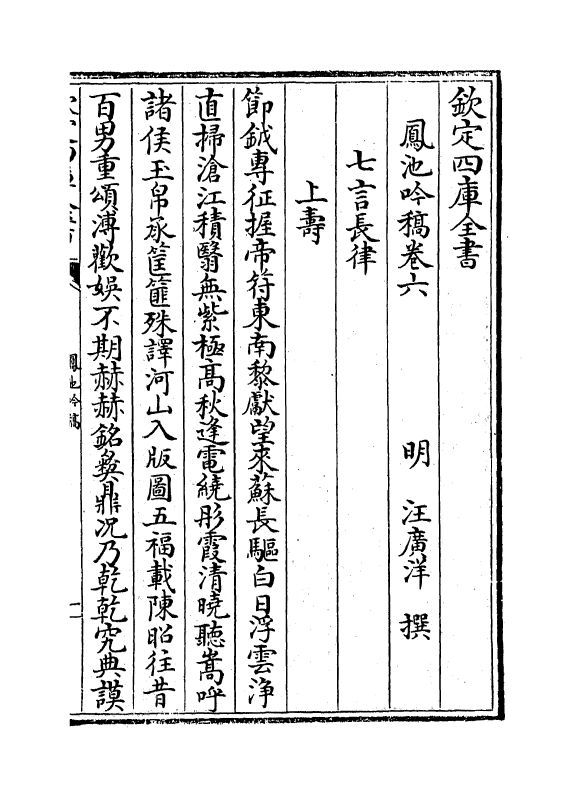 欽定四庫全書
鳳池吟稿卷六　　　　明　汪廣洋　撰
七言長律
上壽
節鉞專征握帝符東南黎獻望來蘇長驅白日浮雲浄
直掃滄江積翳無紫極髙秋逢電繞彤霞清曉聽嵩呼
諸侯玉帛承筐篚殊譯河山入版圖五福載陳昭往昔
百男重頌溥歡娱不期赫赫銘彜鼎况乃乾乾究典謨
鳳池吟稿
一